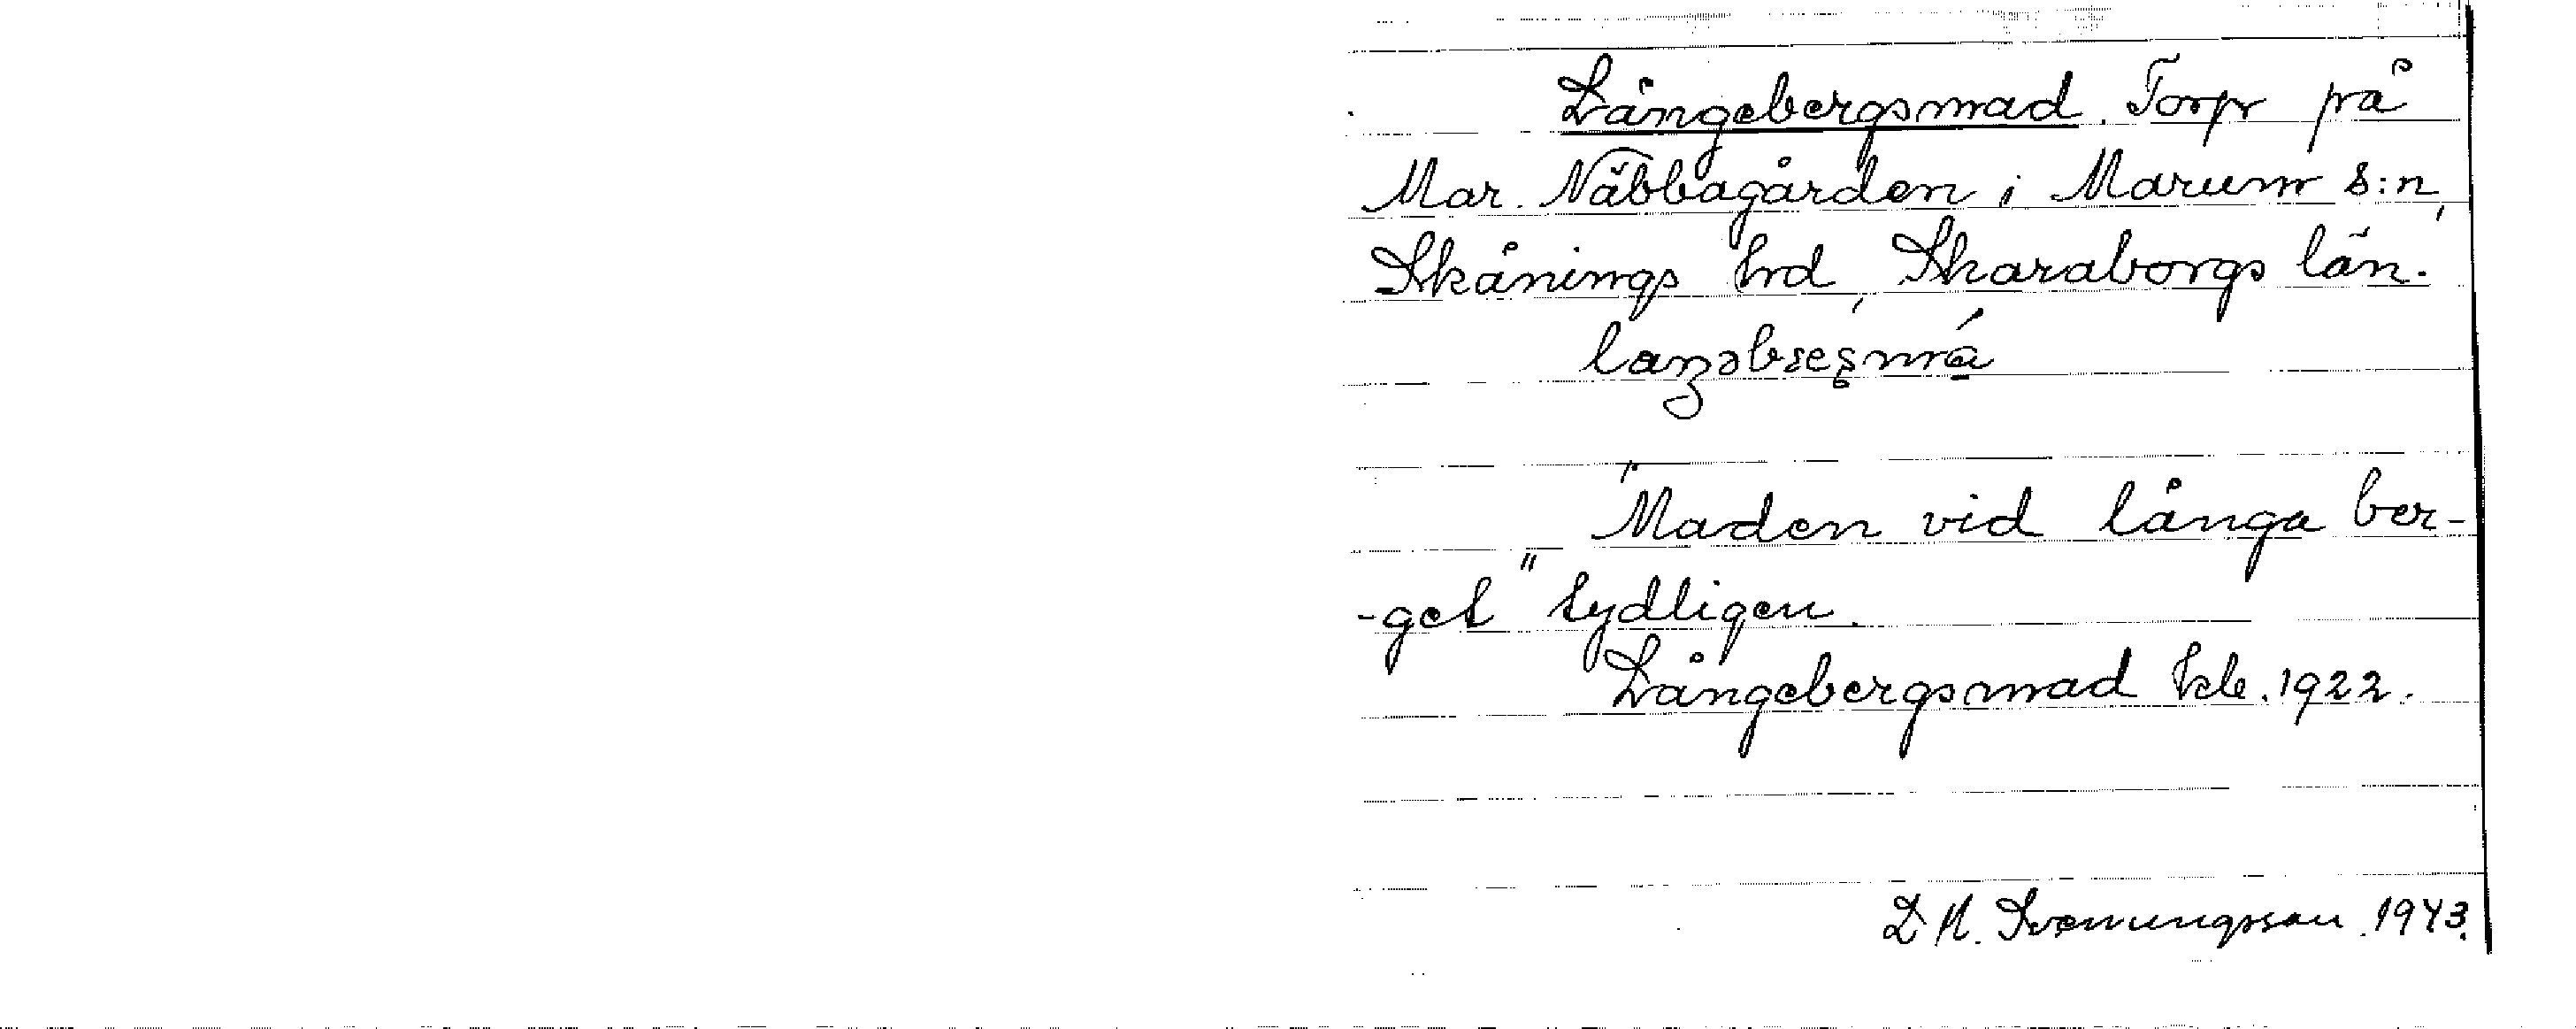 Långebergsmad. Torp på
Mar. Näbbagården i Marum s:n,
Skånings hrd, Skaraborgs län.
"Maden vid långa ber-
-get" tydligen.
Långebergsmad kb. 1922.
1943.